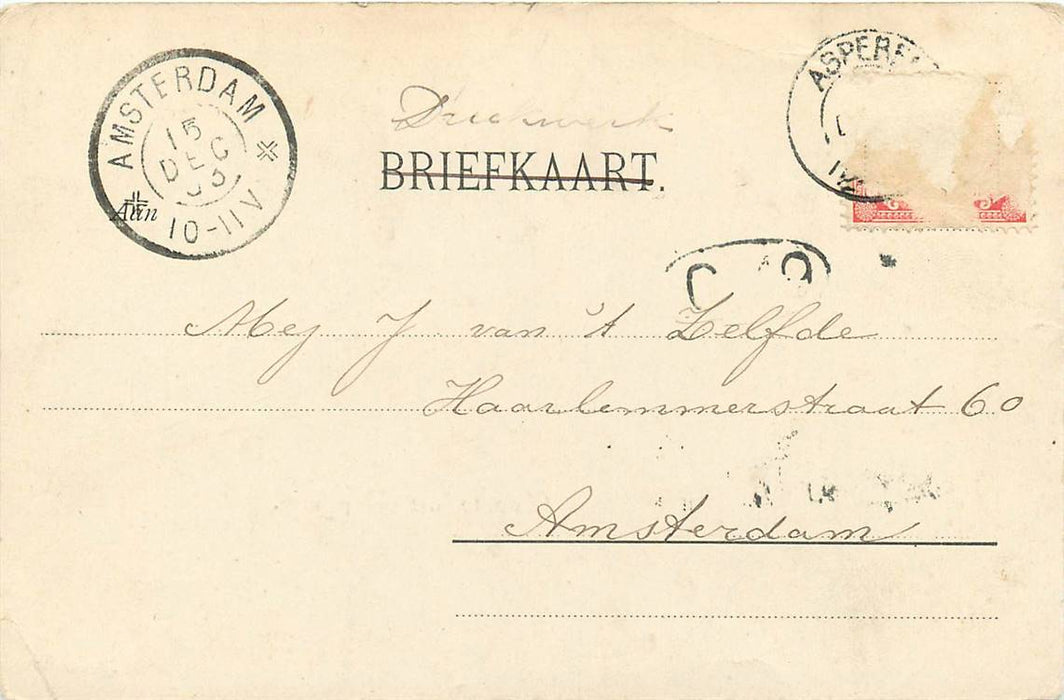 AMSTERDAM
15
DEC
10-11V
ASPERE
Drukwerk
BRIEFKAART.
Aan
Mej J van 't Zelfde
Haarlemmerstraat 60
Amsterdam